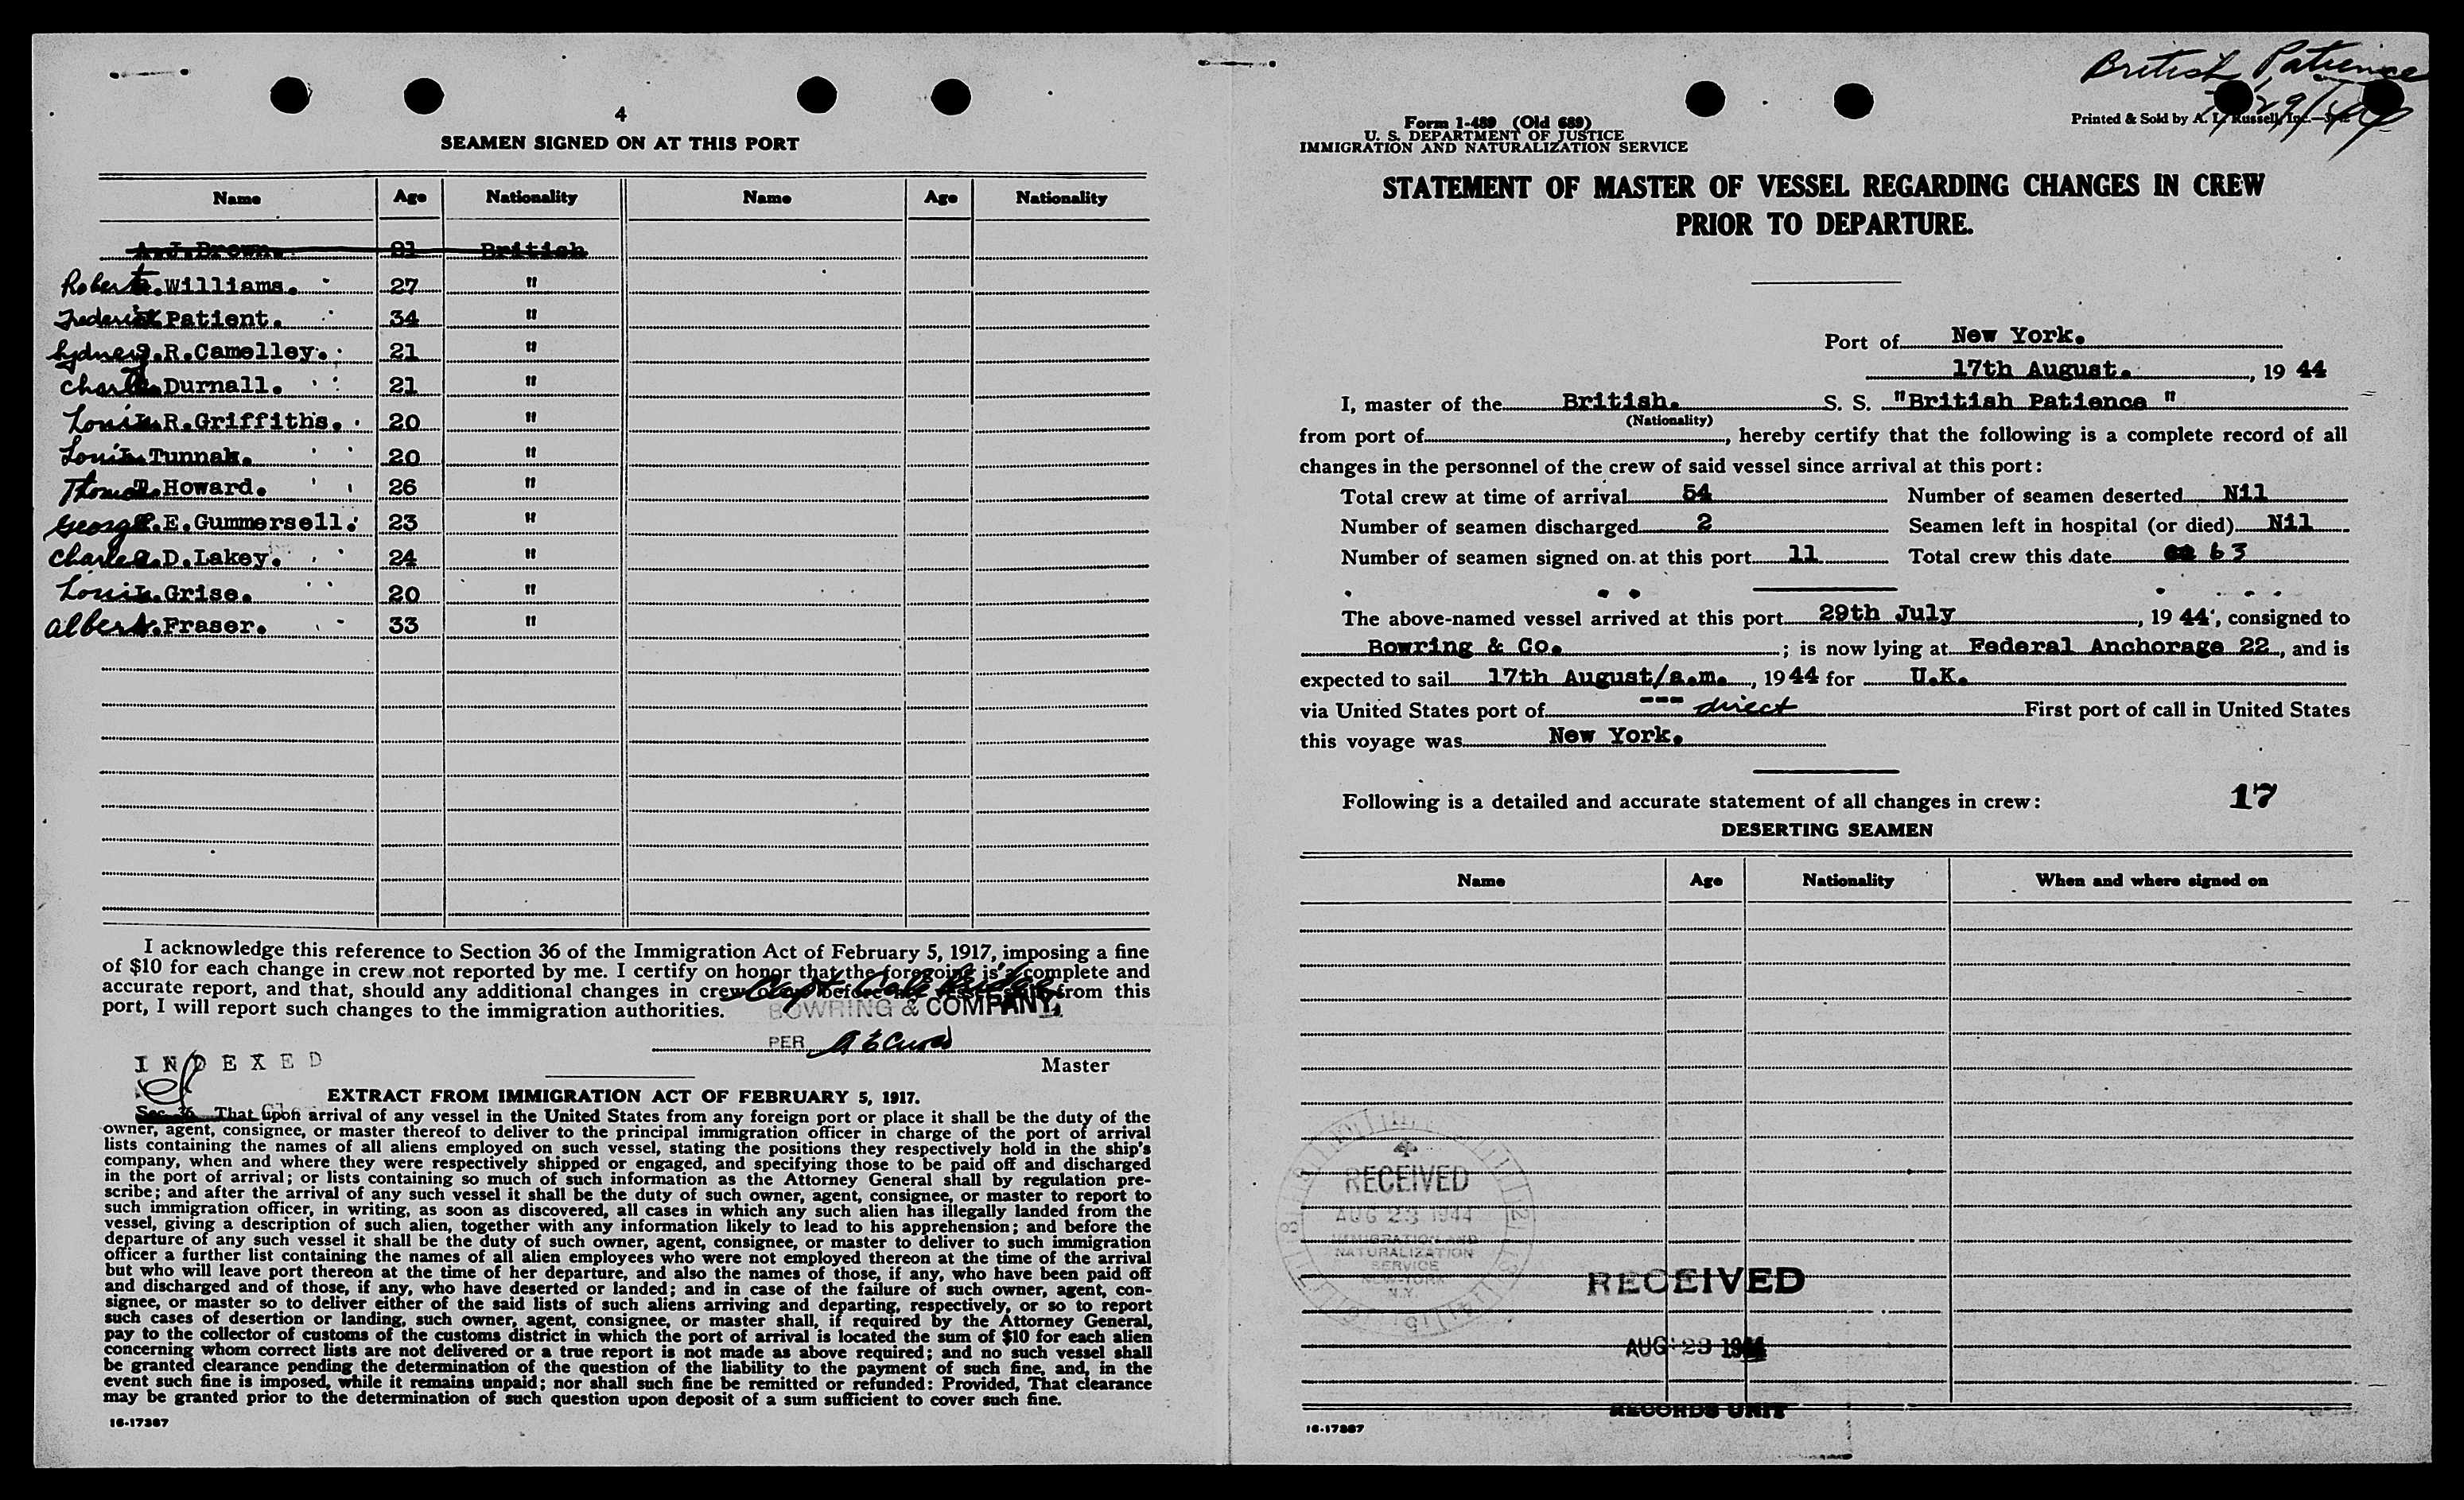 4
SEAMEN SIGNED ON AT THIS PORT
Name Age Nationality Name Age Nationality
A.J.Brown. British
Robert.Williams. 27 "
Frederick Patient. 34 "
Sydney.R.Camelley. 21 "
Charles Durnall. 21 "
Louis R.Griffiths. 20 "
Louis Tunnah. 20 "
Thomas.Howard. 26 "
George.E.Gummersell. 23 "
Charles.D.Lakey. 24 "
Louis.Grise. 20 "
Albert.Fraser. 33 "
I acknowledge this reference to Section 36 of the Immigration Act of February 5, 1917, imposing a fine
of $10 for each change in crew not reported by me. I certify on honor that the foregoing is a complete and
accurate report, and that, should any additional changes in crew occur before my vessel sails from this
port, I will report such changes to the immigration authorities.
Capt
BOWRING & COMPANY,
PER
Master
INDEXED
EXTRACT FROM IMMIGRATION ACT OF FEBRUARY 5, 1917.
Sec. 36. That upon arrival of any vessel in the United States from any foreign port or place it shall be the duty of the
owner, agent, consignee, or master thereof to deliver to the principal immigration officer in charge of the port of arrival
lists containing the names of all aliens employed on such vessel, stating the positions they respectively hold in the ship's
company, when and where they were respectively shipped or engaged, and specifying those to be paid off and discharged
in the port of arrival; or lists containing so much of such information as the Attorney General shall by regulation pre-
scribe; and after the arrival of any such vessel it shall be the duty of such owner, agent, consignee, or master to report to
such immigration officer, in writing, as soon as discovered, all cases in which any such alien has illegally landed from the
vessel, giving a description of such alien, together with any information likely to lead to his apprehension; and before the
departure of any such vessel it shall be the duty of such owner, agent, consignee, or master to deliver to such immigration
officer a further list containing the names of all alien employees who were not employed thereon at the time of the arrival
but who will leave port thereon at the time of her departure, and also the names of those, if any, who have been paid off
and discharged and of those, if any, who have deserted or landed; and in case of the failure of such owner, agent, con-
signee, or master so to deliver either of the said lists of such aliens arriving and departing, respectively, or so to report
such cases of desertion or landing, such owner, agent, consignee, or master shall, if required by the Attorney General,
pay to the collector of customs of the customs district in which the port of arrival is located the sum of $10 for each alien
concerning whom correct lists are not delivered or a true report is not made as above required; and no such vessel shall
be granted clearance pending the determination of the question of the liability to the payment of such fine, and, in the
event such fine is imposed, while it remains unpaid; nor shall such fine be remitted or refunded: Provided, That clearance
may be granted prior to the determination of such question upon deposit of a sum sufficient to cover such fine.
16-17387
British Patience
7/29/44
Form I-489 (Old 689)
U. S. DEPARTMENT OF JUSTICE
IMMIGRATION AND NATURALIZATION SERVICE
Printed & Sold by A. L. Russell, Inc.
STATEMENT OF MASTER OF VESSEL REGARDING CHANGES IN CREW
PRIOR TO DEPARTURE.
Port of New York.
17th August. , 19 44
I, master of the British. S. S. "British Patience "
(Nationality)
from port of , hereby certify that the following is a complete record of all
changes in the personnel of the crew of said vessel since arrival at this port:
Total crew at time of arrival 54 Number of seamen deserted Nil
Number of seamen discharged 2 Seamen left in hospital (or died) Nil
Number of seamen signed on at this port 11 Total crew this date 63
The above-named vessel arrived at this port 29th July , 19 44, consigned to
Bowring & Co. ; is now lying at Federal Anchorage 22, and is
expected to sail 17th August/a.m. , 19 44 for U.K.
via United States port of --- direct First port of call in United States
this voyage was New York.
Following is a detailed and accurate statement of all changes in crew: 17
DESERTING SEAMEN
Name Age Nationality When and where signed on
RECEIVED
AUG 23 1944
IMMIGRATION AND
NATURALIZATION
SERVICE
NEW YORK
N.Y.
RECEIVED
AUG 23 1944
RECORDS UNIT
16-17387